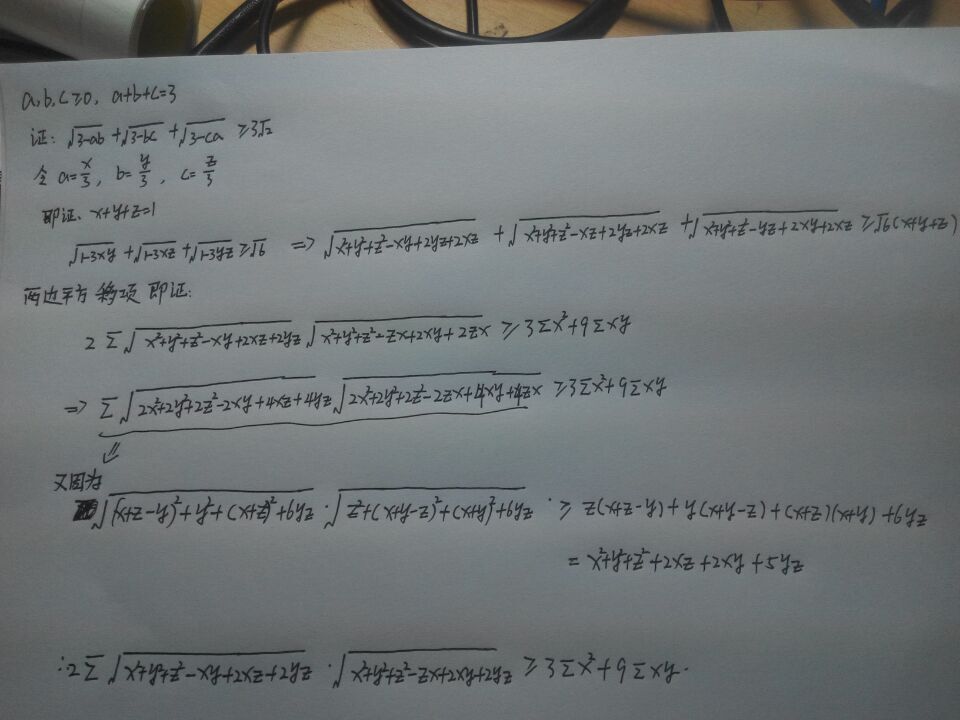 a,b,c≥0, a+b+c=3
证: √(3-ab) + √(3-bc) + √(3-ca) ≥3√2
令 a=x/3, b=y/3, c=z/3
即证、x+y+z=1
√(1-3xy) + √(1-3xz) + √(1-3yz) ≥√6 => √(x²+y²+z²-xy+2yz+2xz) + √(x²+y²+z²-xz+2yz+2xz) + √(x²+y²+z²-yz+2xy+2xz) ≥√6(x+y+z)
两边平方 移项 即证:
2 Σ √(x²+y²+z²-xy+2xz+2yz) √(x²+y²+z²-zx+2xy+2zx) ≥ 3Σx²+9Σxy
=> Σ √(2x²+2y²+2z²-2xy+4xz+4yz) √(2x²+2y²+2z²-2zx+4xy+4zx) ≥3Σx²+9Σxy
又因为
√((x+z-y)²+y²+(x+z)²+6yz) · √(z²+(x+y-z)²+(x+y)²+6yz) · ≥ z(x+z-y)+y(x+y-z)+(x+z)(x+y)+6yz
= x²+y²+z²+2xz+2xy+5yz
∴2Σ √(x²+y²+z²-xy+2xz+2yz) · √(x²+y²+z²-zx+2xy+2yz) ≥ 3Σx²+9Σxy.